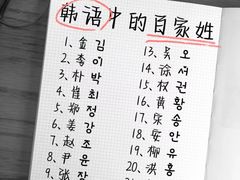 韩语中的百家姓
1、金 김
2、李 이
3、朴 박
4、崔 최
5、郑 정
6、姜 강
7、赵 조
8、尹 윤
9、张 장
13、吴 오
14、徐 서
15、权 권
16、黄 황
17、宋 송
18、安 안
19、柳 유
20、洪 홍